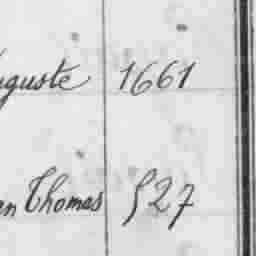 uguste 1661
en Thomas 527